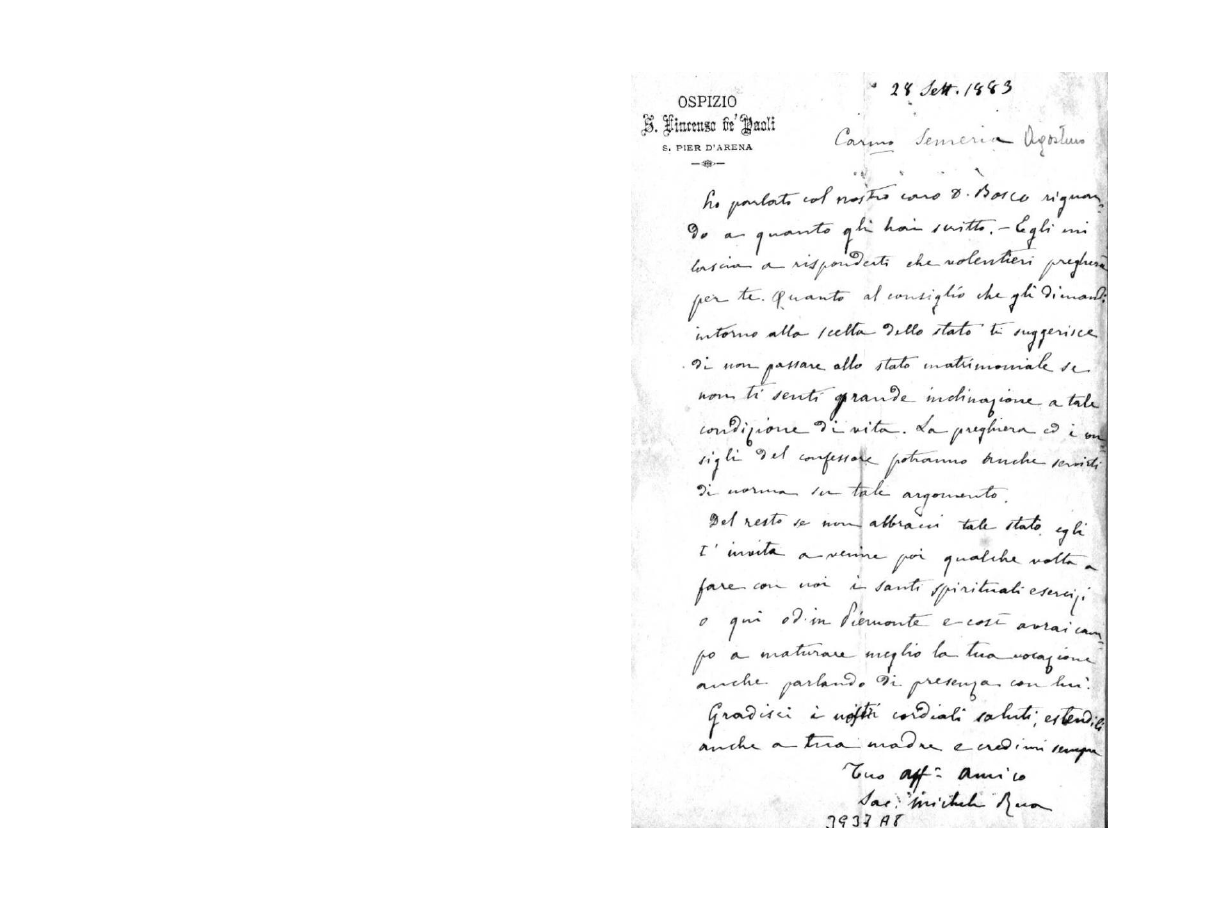 28 Sett. 1883
OSPIZIO
S. Vincenso de' Paoli
S. PIER D'ARENA
Carmo Semeria Agostino
ho parlato col nostro caro D. Bosco riguar-
do a quanto gli hai scritto. – Egli mi
lascia a risponderti che volentieri pregherà
per te. Quanto al consiglio che gli dimandi
intorno alla scelta dello stato ti suggerisce
di non passare allo stato matrimoniale se
non ti senti grande inclinazione a tale
condizione di vita. La preghiera ed i con
sigli del confessore potranno anche servirti
di norma su tale argomento.
Del resto se non abbracci tale stato, egli
t' invita a venire poi qualche volta a
fare con noi i santi spirituali esercizi
o qui od in Piemonte e così avrai cam-
po a maturare meglio la tua vocazione
anche parlando di presenza con lui.
Gradisci i nostri cordiali saluti, estendili
anche a tua madre e credimi sempre
Tuo aff.º amico
Sac. Michele Rua
3937 A8